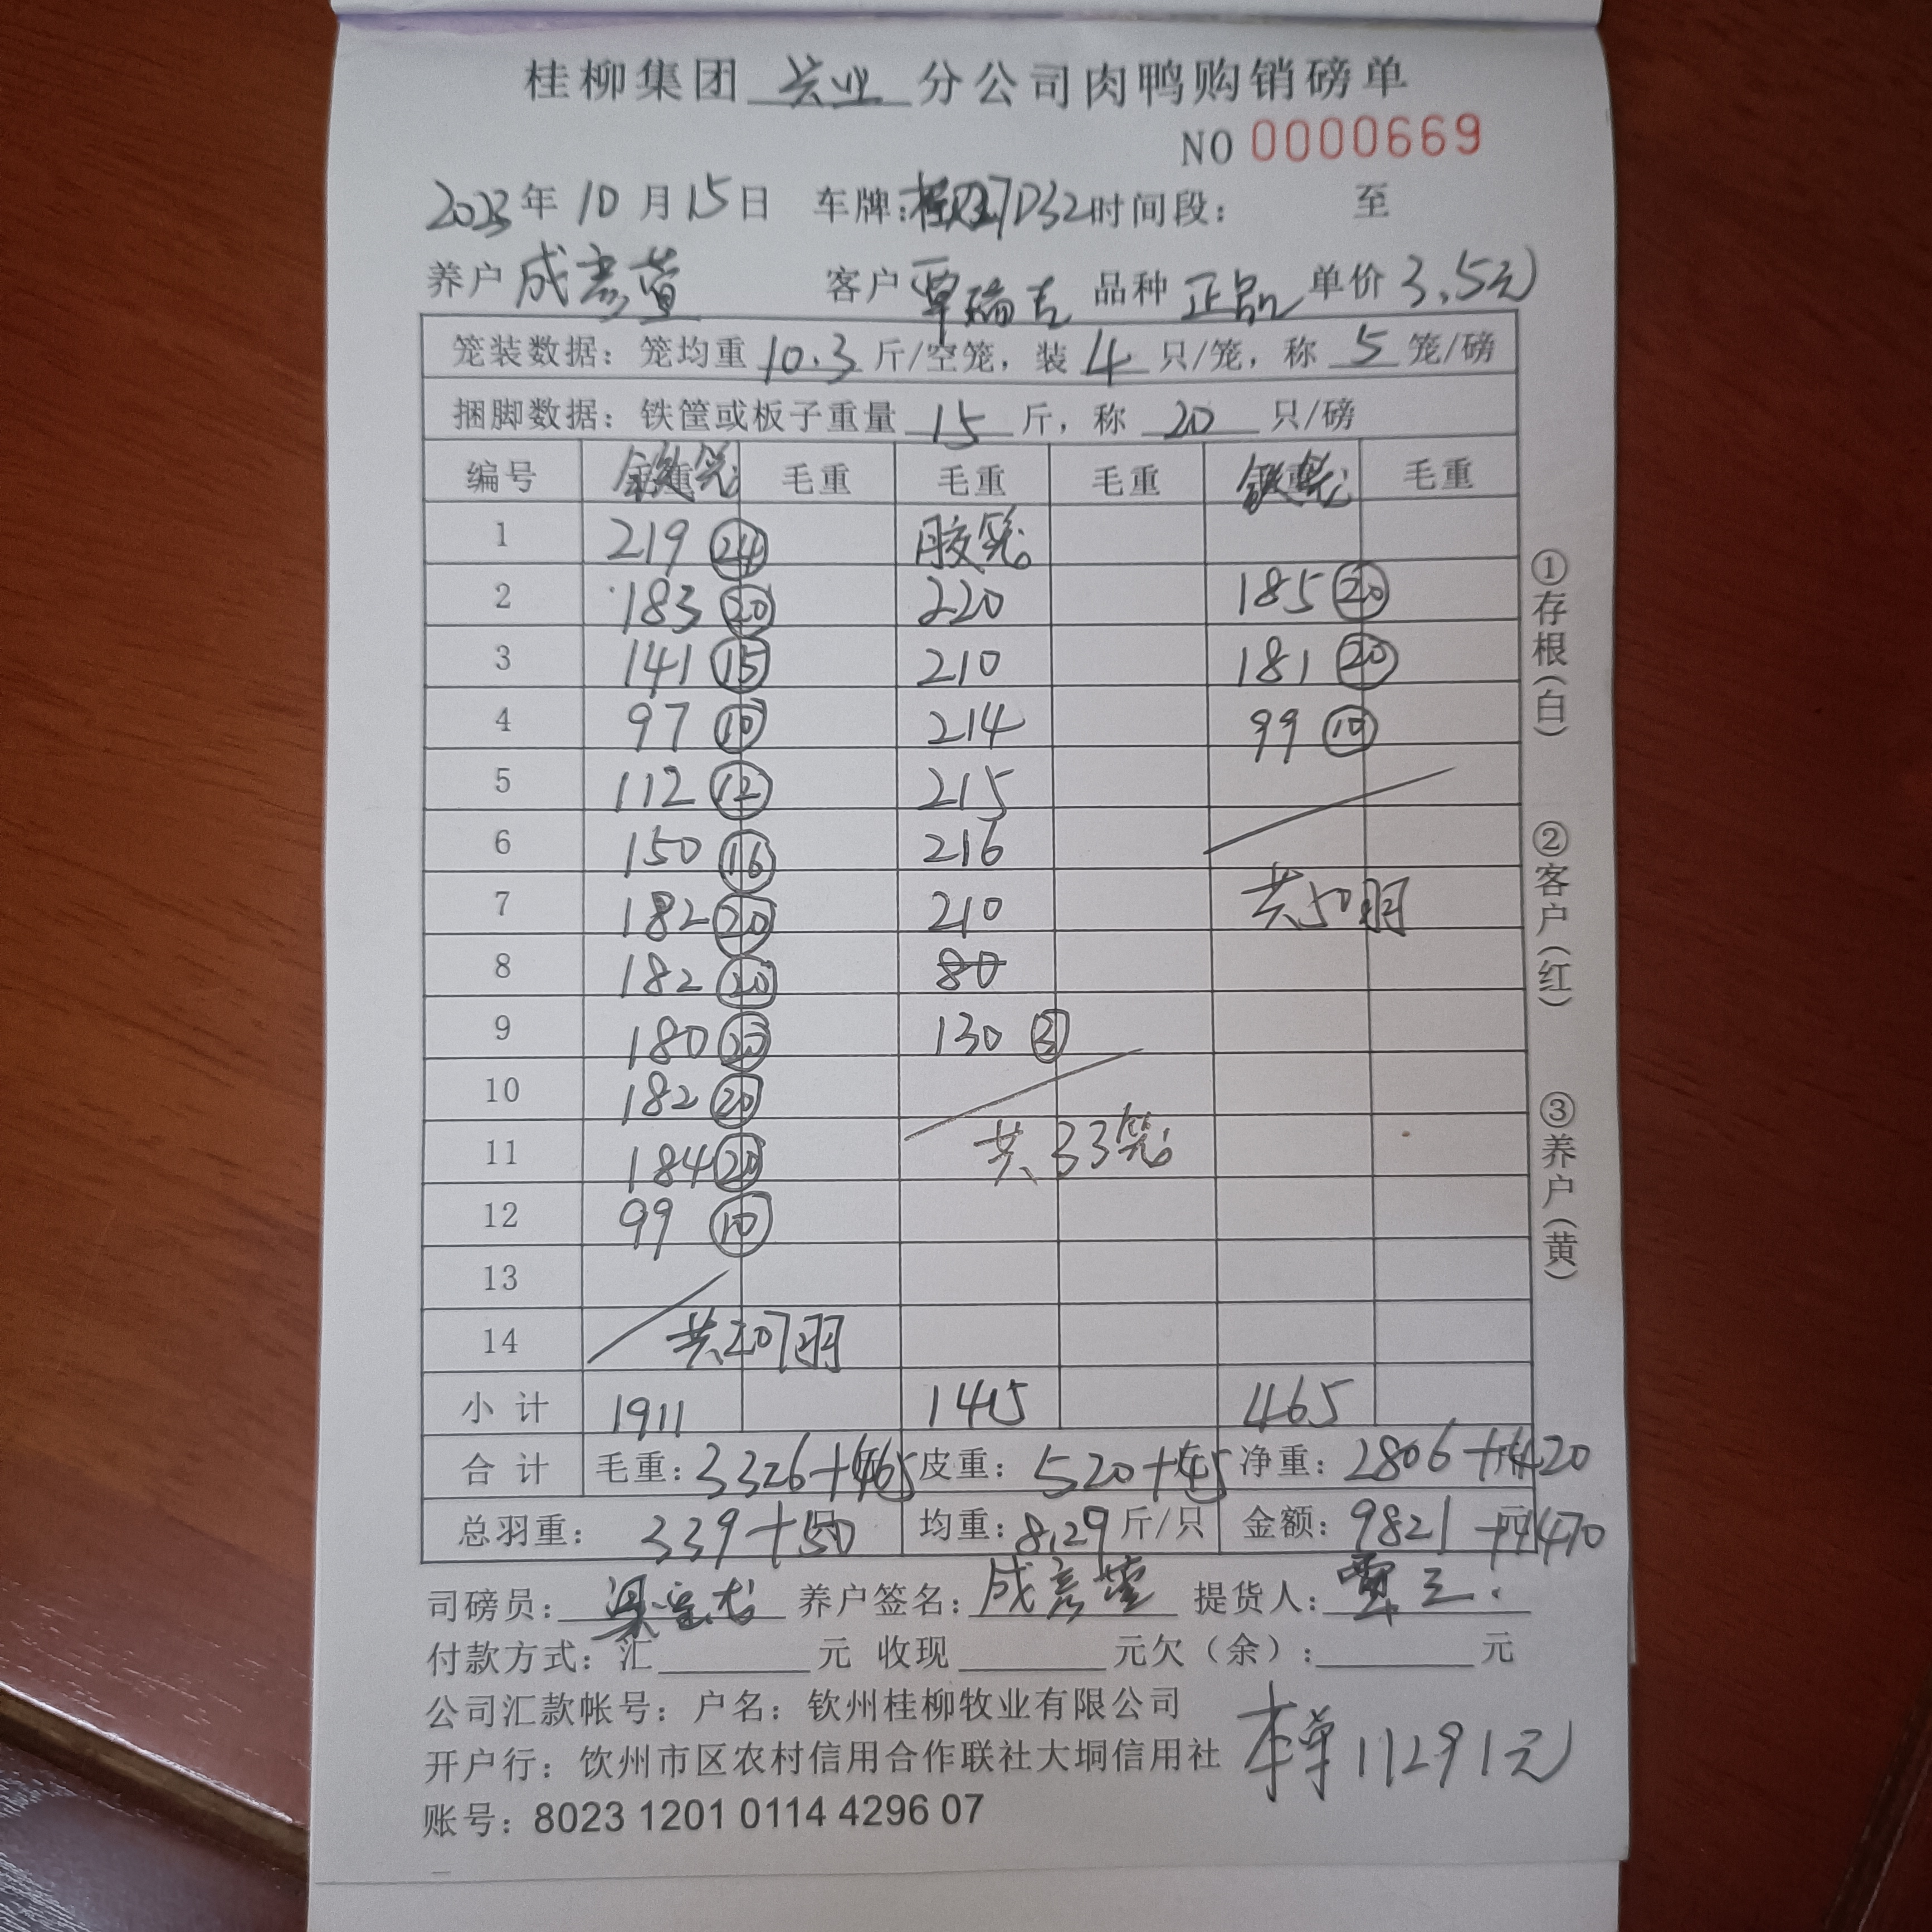 桂柳集团 兴业 分公司肉鸭购销磅单
NO 0000669
2023年 10 月 15 日 车牌: 7D32 时间段: 至
养户 成彦萱 客户 覃瑞吉 品种 正品 单价 3.5元
笼装数据: 笼均重 10.3 斤/空笼, 装 4 只/笼, 称 5 笼/磅
捆脚数据: 铁筐或板子重量 15 斤, 称 20 只/磅
编号 铁笼 毛重 毛重 毛重 铁笼 毛重
1 219 24 胶笼
2 183 20 220 185 20
3 141 15 210 181 20
4 97 10 214 99 10
5 112 12 215
6 150 16 216
7 182 20 210 共50羽
8 182 20 80
9 180 20 130 3
10 182 20
11 184 20 共33笼
12 99 10
13
14 共207羽
小计 1911 1415 465
合计 毛重: 3326+465 皮重: 520+45 净重: 2806+420
总羽重: 339+50 均重: 8.29 斤/只 金额: 9821+1470
司磅员: 养户签名: 成彦萱 提货人: 覃三.
付款方式: 汇 元 收现 元欠(余): 元
公司汇款帐号: 户名: 钦州桂柳牧业有限公司
开户行: 饮州市区农村信用合作联社大垌信用社
本单11291元
账号: 8023 1201 0114 4296 07
①存根(白)
②客户(红)
③养户(黄)